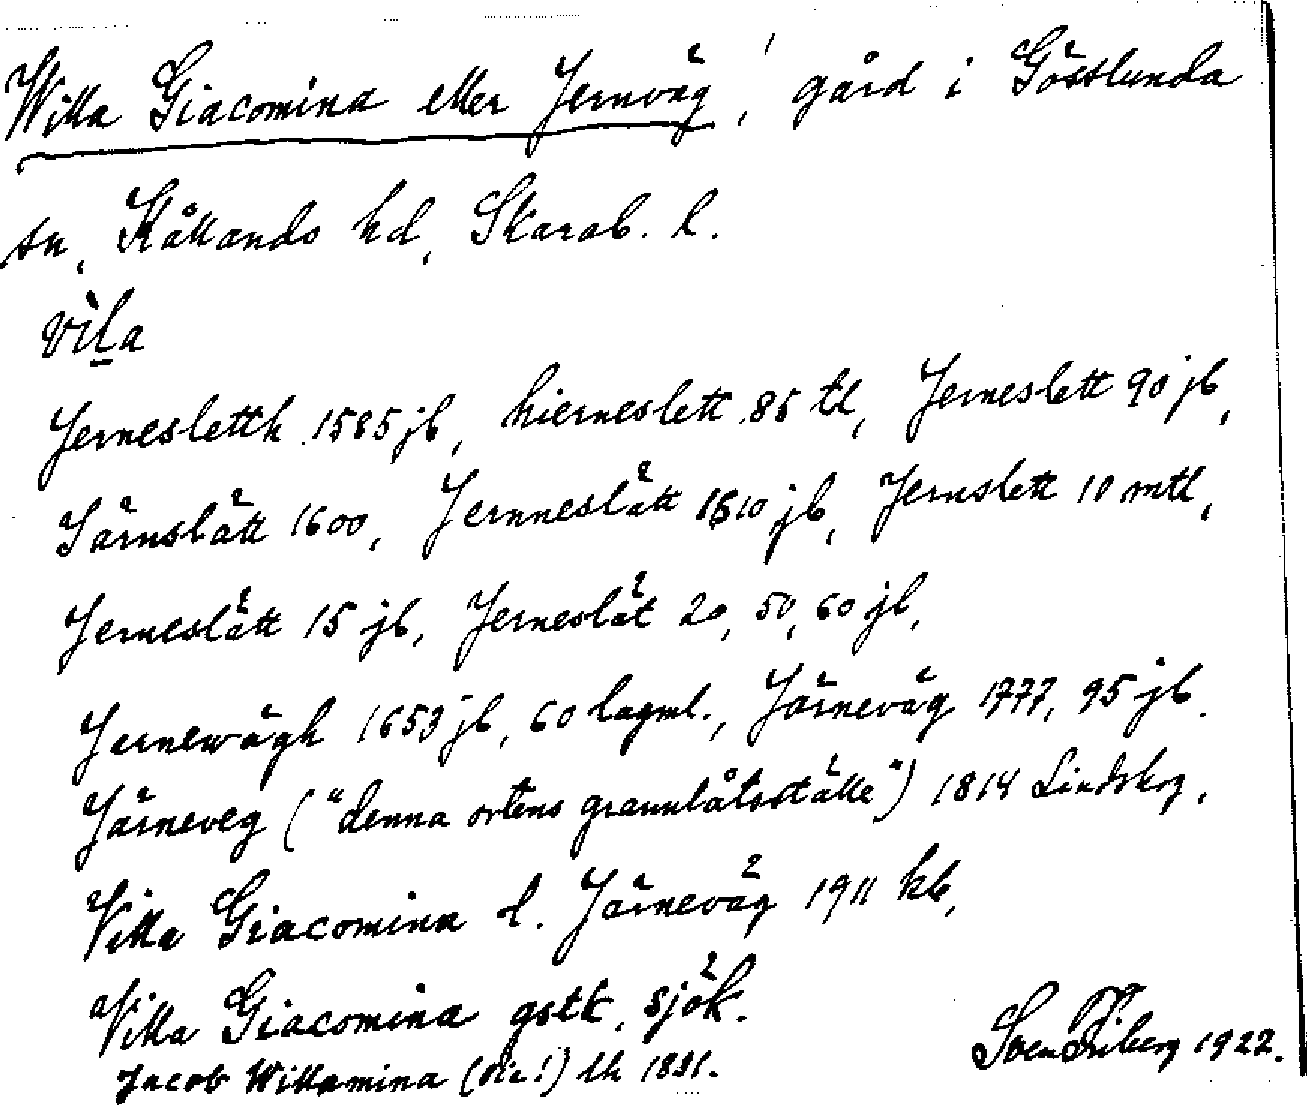 Willa Giacomina eller Jernväg, gård i Gösslunda
sn, Kållands hd, Skarab. l.
vìla
Jerneslettk 1585 jb, hierneslett 85 tl, Jerneslett 90 jb,
Järnslätt 1600, Jernneslätt 1610 jb, Jernslett 10 mtl,
Jerneslätt 15 jb, Jerneslät 20, 50, 60 jb,
Jernewägh 1653 jb, 60 lagml., Järneväg 1777, 95 jb.
Järneveg ("denna ortens grannlåtsställe") 1814 Lindskog.
Villa Giacomina l. Järneväg 1911 kb,
Villa Giacomina gstk, sjök.
Jacob Willamina (sic!) lk 1881.
Sven Friberg 1922.